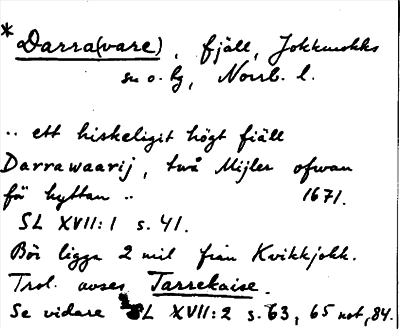 *Darra(vare), fjäll, Jokkmokks
sn o. hg, Norrb. l.
.. ett hiskeligit högt fiäll
Darrawaarij, twå Mijler ofwan
för hyttan .. 1671.
SL XVII:1 s. 41.
Bör ligga 2 mil från Kvikkjokk.
Trol. avses Tarrekaise.
Se vidare SL XVII:2 s. 63, 65 not, 84.